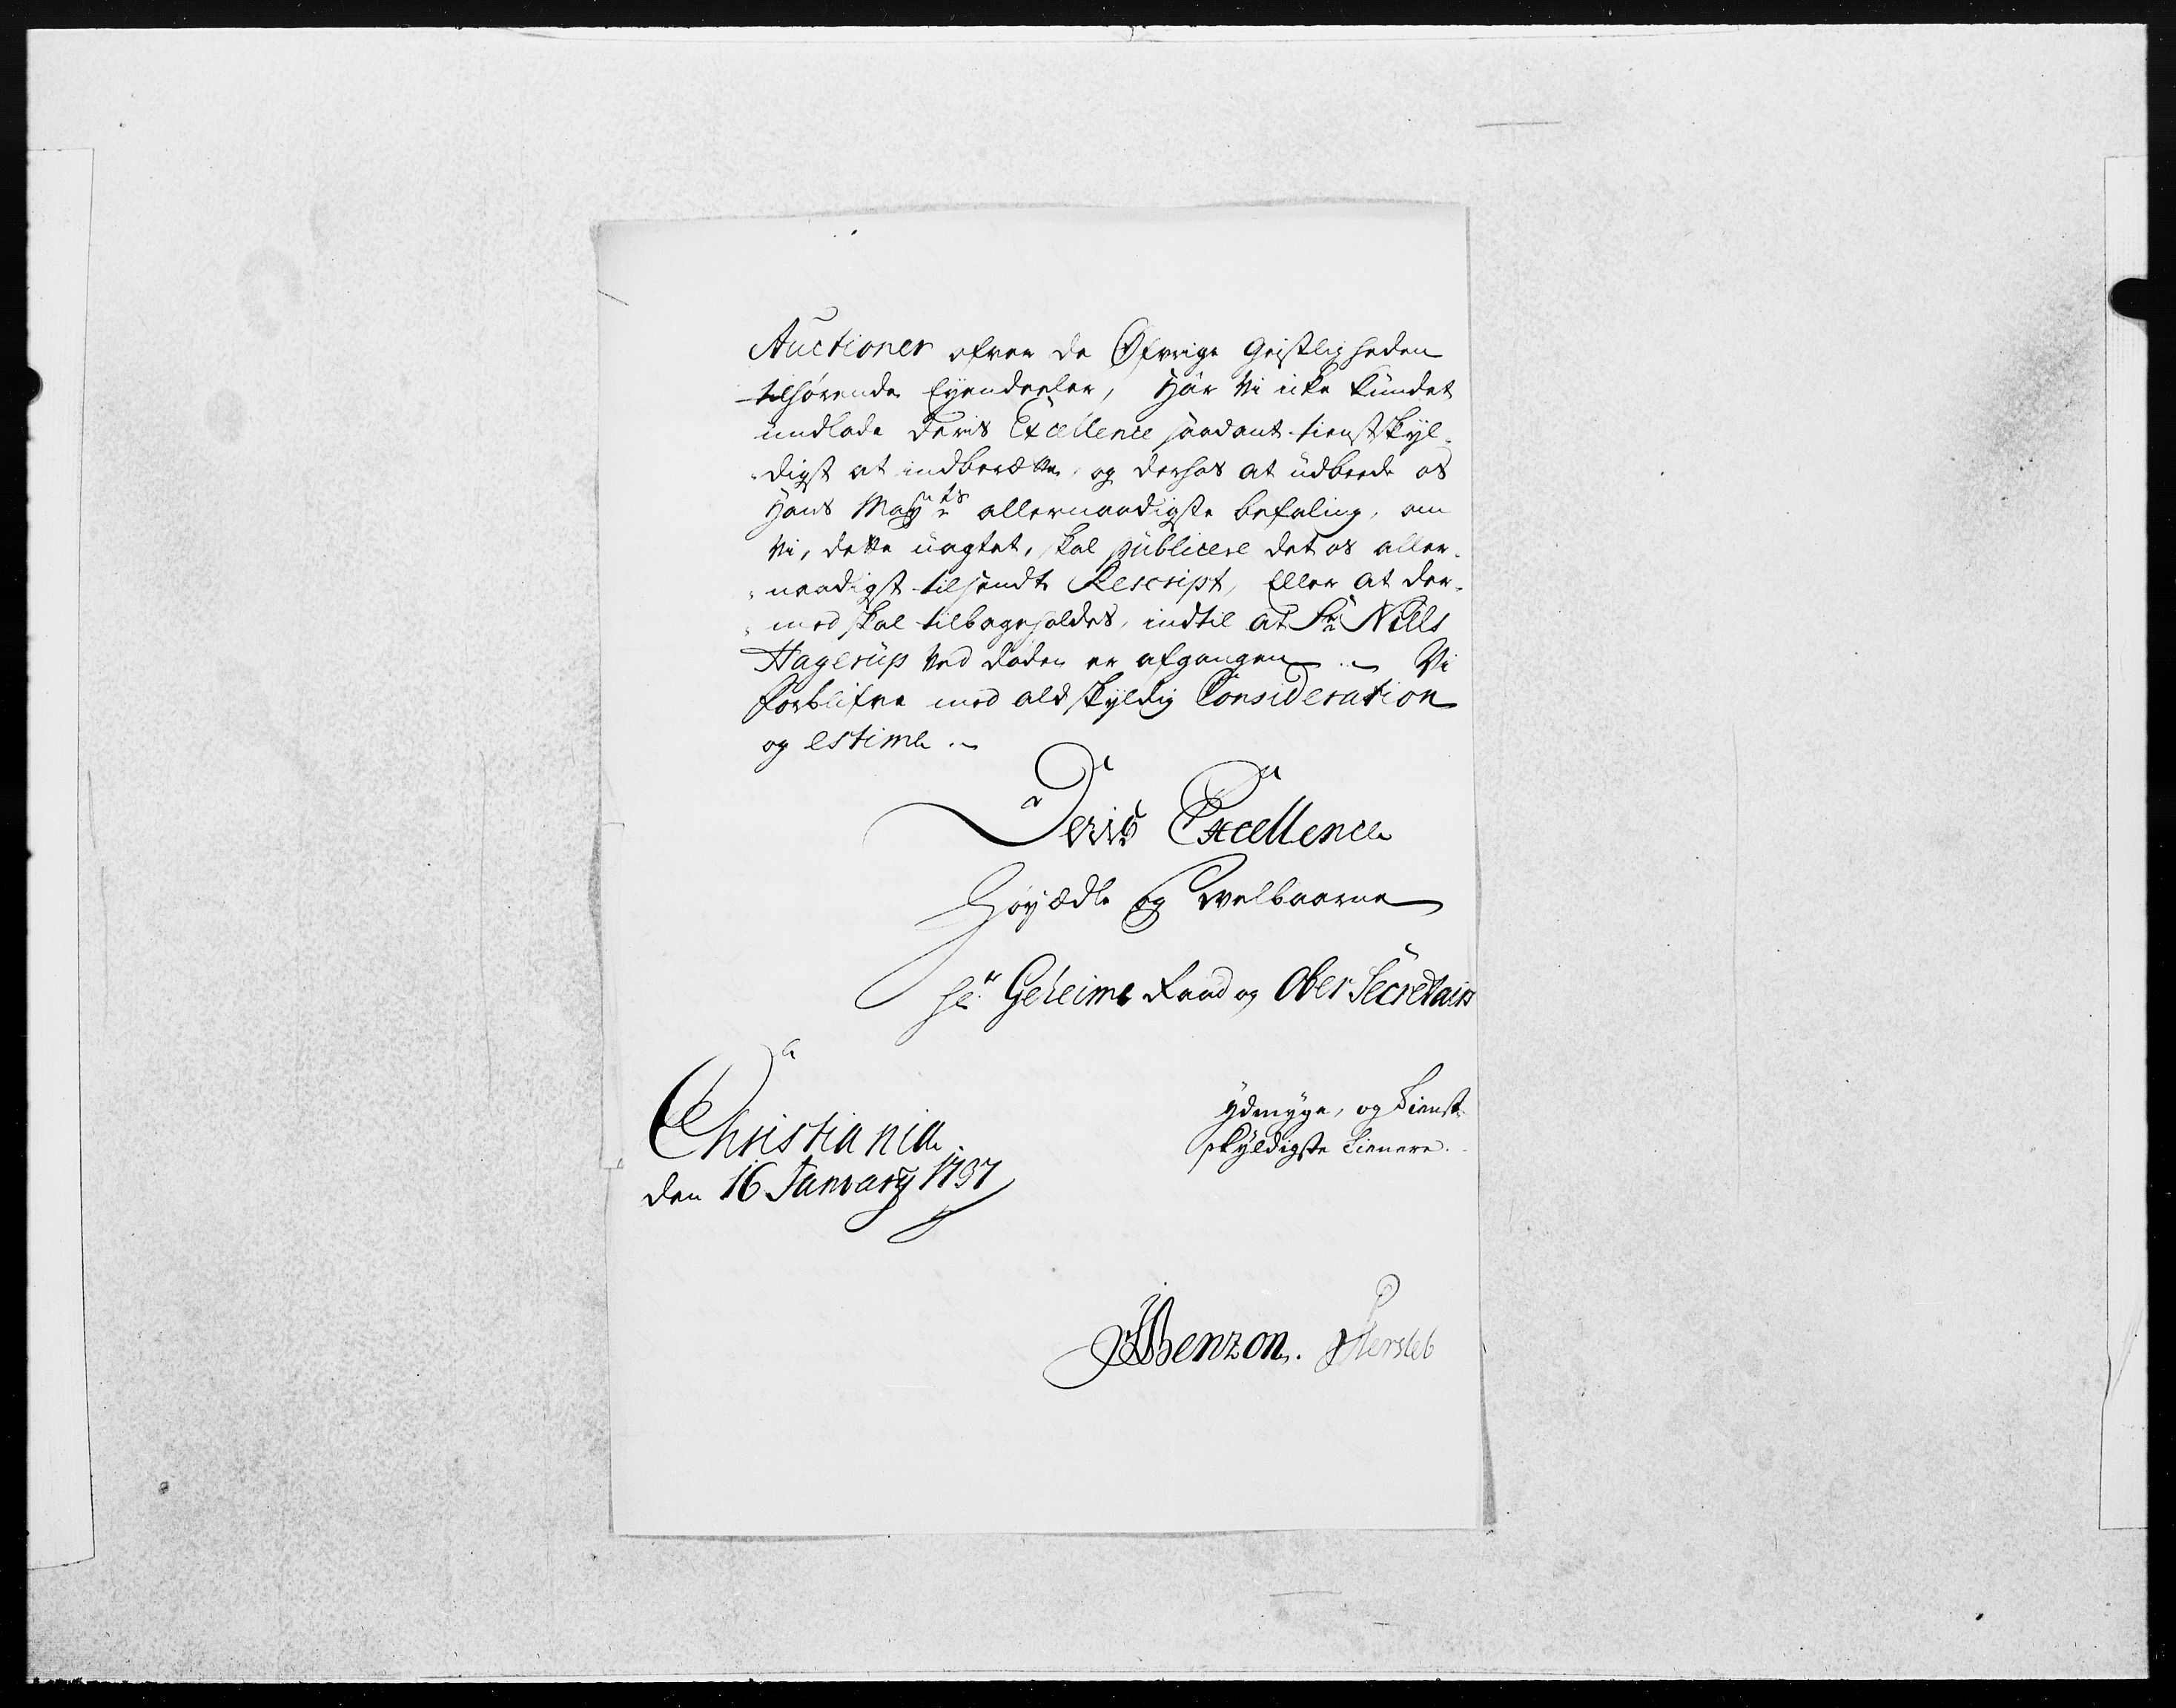 Auctioner ofver de Øfvrige Geistligheden
tilhørende Eyendeeler, Har Vi icke kundet
undlade Deris Excellence saadant tienstskyl-
digst at indberette, og derhos at udbeede os
Hans Mayts allernaadigste befaling, om
Vi, dette uagtet, skal publicere det os aller-
naadigst tilsendte Rescript, Eller at der-
med skal tilbageholdes, indtil at Hr Niels
Hagerup ved døden er afgangen Vi
forblifve med ald skyldig Consideration
og estime
Deris Excellence
Høyædle og Velbaarne
Hr Geheime Raad og Ober Secretairs
Christiania
den 16 January 1737
ydmyge, og Tienst
skyldigste Tienere.
Benzon. PHersleb